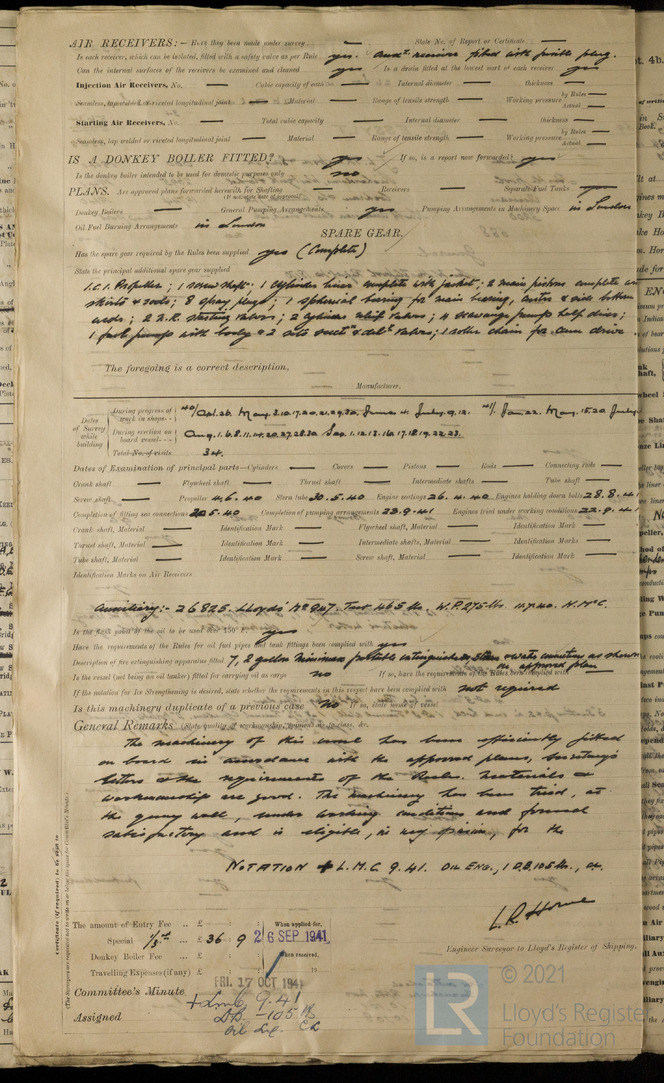 AIR RECEIVERS:— Have they been made under survey — State No. of Report or Certificate —
Is each receiver, which can be isolated, fitted with a safety valve as per Rule yes. Auxy. receiver fitted with fusible plug.
Can the internal surfaces of the receivers be examined and cleaned yes Is a drain fitted at the lowest part of each receiver yes
Injection Air Receivers, No. — Cubic capacity of each — Internal diameter — thickness —
Seamless, lap welded or riveted longitudinal joint — Material — Range of tensile strength — Working pressure by Rules — Actual —
Starting Air Receivers, No. — Total cubic capacity — Internal diameter — thickness —
Seamless, lap welded or riveted longitudinal joint — Material — Range of tensile strength — Working pressure by Rules — Actual —
IS A DONKEY BOILER FITTED? yes If so, is a report now forwarded? yes
Is the donkey boiler intended to be used for domestic purposes only no
PLANS. Are approved plans forwarded herewith for Shafting — Receivers — Separate Fuel Tanks yes
Donkey Boilers — General Pumping Arrangements yes Pumping Arrangements in Machinery Space in London
Oil Fuel Burning Arrangements in London
SPARE GEAR.
Has the spare gear required by the Rules been supplied yes (Complete)
State the principal additional spare gear supplied
1 C.I. Propeller; 1 screw shaft; 1 cylinder liner complete with jacket; 2 main pistons complete with
skirts & rods; 8 spray plugs; 1 spherical bearing for main bearing, centre & side bottom
ends; 2 A.R. starting valves; 2 cylinder relief valves; 4 scavenge pump half discs;
1 fuel pump with body & 2 sets suctn & delt valves; 1 roller chain for cam drive
The foregoing is a correct description,
Manufacturer.
Dates of Survey while building
During progress of work in shops - - 40/ Oct. 26. May. 8.10.17.20.21.29.30. June 4. July. 9.12. 41/ Jan. 22. May. 15.20 July
During erection on board vessel - - - Aug. 1.6.8.11.14.20.27.28.30 Sep. 1.12.13.16.17.18.19.22.23.
Total No. of visits 34.
Dates of Examination of principal parts—Cylinders — Covers — Pistons — Rods — Connecting rods —
Crank shaft — Flywheel shaft — Thrust shaft — Intermediate shafts — Tube shaft —
Screw shaft — Propeller 4.6.40 Stern tube 30.5.40 Engine seatings 26.4.40 Engines holding down bolts 28.8.41
Completion of fitting sea connections 20.5.40 Completion of pumping arrangements 23.9.41 Engines tried under working conditions 22.9.41
Crank shaft, Material — Identification Mark — Flywheel shaft, Material — Identification Mark —
Thrust shaft, Material — Identification Mark — Intermediate shafts, Material — Identification Marks —
Tube shaft, Material — Identification Mark — Screw shaft, Material — Identification Mark —
Identification Marks on Air Receivers
Auxiliary:- 26825. Lloyds' No 947. Test 465 lbs. W.P. 275 lbs. 11.7.40. H.McC.
Is the flash point of the oil to be used over 150° yes
Have the requirements of the Rules for oil fuel pipes and tank fittings been complied with yes
Description of fire extinguishing apparatus fitted 7, 2 gallon Minimax portable extinguishers, Steam & water connections as shown
on approved plan
Is the vessel (not being an oil tanker) fitted for carrying oil as cargo no If so, have the requirements of the Rules been complied with —
If the notation for Ice Strengthening is desired, state whether the requirements in this respect have been complied with not required
Is this machinery duplicate of a previous case No If so, state name of vessel
General Remarks (State quality of workmanship, opinions as to class, &c.
The machinery of this vessel has been efficiently fitted
on board in accordance with the approved plans, Secretary's
letters & the requirements of the Rules. Materials &
workmanship are good. The machinery has been tried, at
the quay wall, under working conditions and found
satisfactory and is eligible, in my opinion, for the
NOTATION + L.M.C 9.41. OIL ENG., 1 D.B. 105 lbs., CL.
The amount of Entry Fee .. £ : :
Special 1/5th .. £ 36 : 9 : When applied for,
26 SEP 1941
Donkey Boiler Fee .. £ : : When received,
Travelling Expenses (if any) £ : : 19
L. R. Horne
Engineer Surveyor to Lloyd's Register of Shipping.
Committee's Minute FRI. 17 OCT 1941
Assigned + LMC 9.41
DB - 105 lb
Oil Eng. CL
© 2021
LR
Lloyd's Register
Foundation